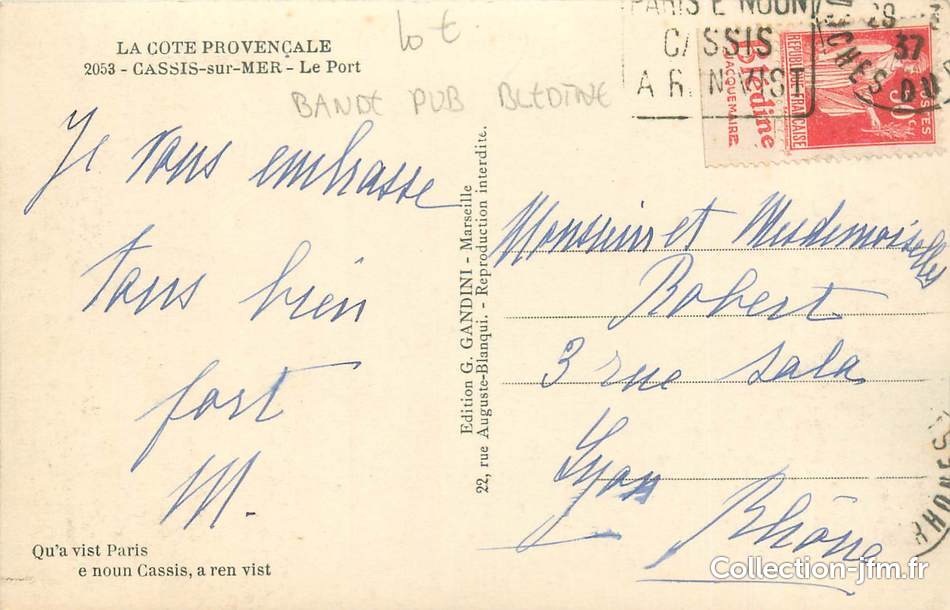 LA COTE PROVENÇALE
2053 - CASSIS-sur-MER - Le Port
lot
BANDE PUB BLEDINE
Je vous embrasse
tous bien
fort
M.
Qu'a vist Paris
e noun Cassis, a ren vist
Edition G. GANDINI - Marseille
22, rue Auguste-Blanqui. - Reproduction interdite.
PARIS E NOUN
CASSIS
A REN VIST
Blédine
JACQUEMAIRE
REPUBLIQUE FRANÇAISE
POSTES
50c
29
37
BOUCHES DU R
Monsieur et Mesdemoiselles
Robert
3 rue Sala
Lyon
Rhône
RHONE
Collection-jfm.fr